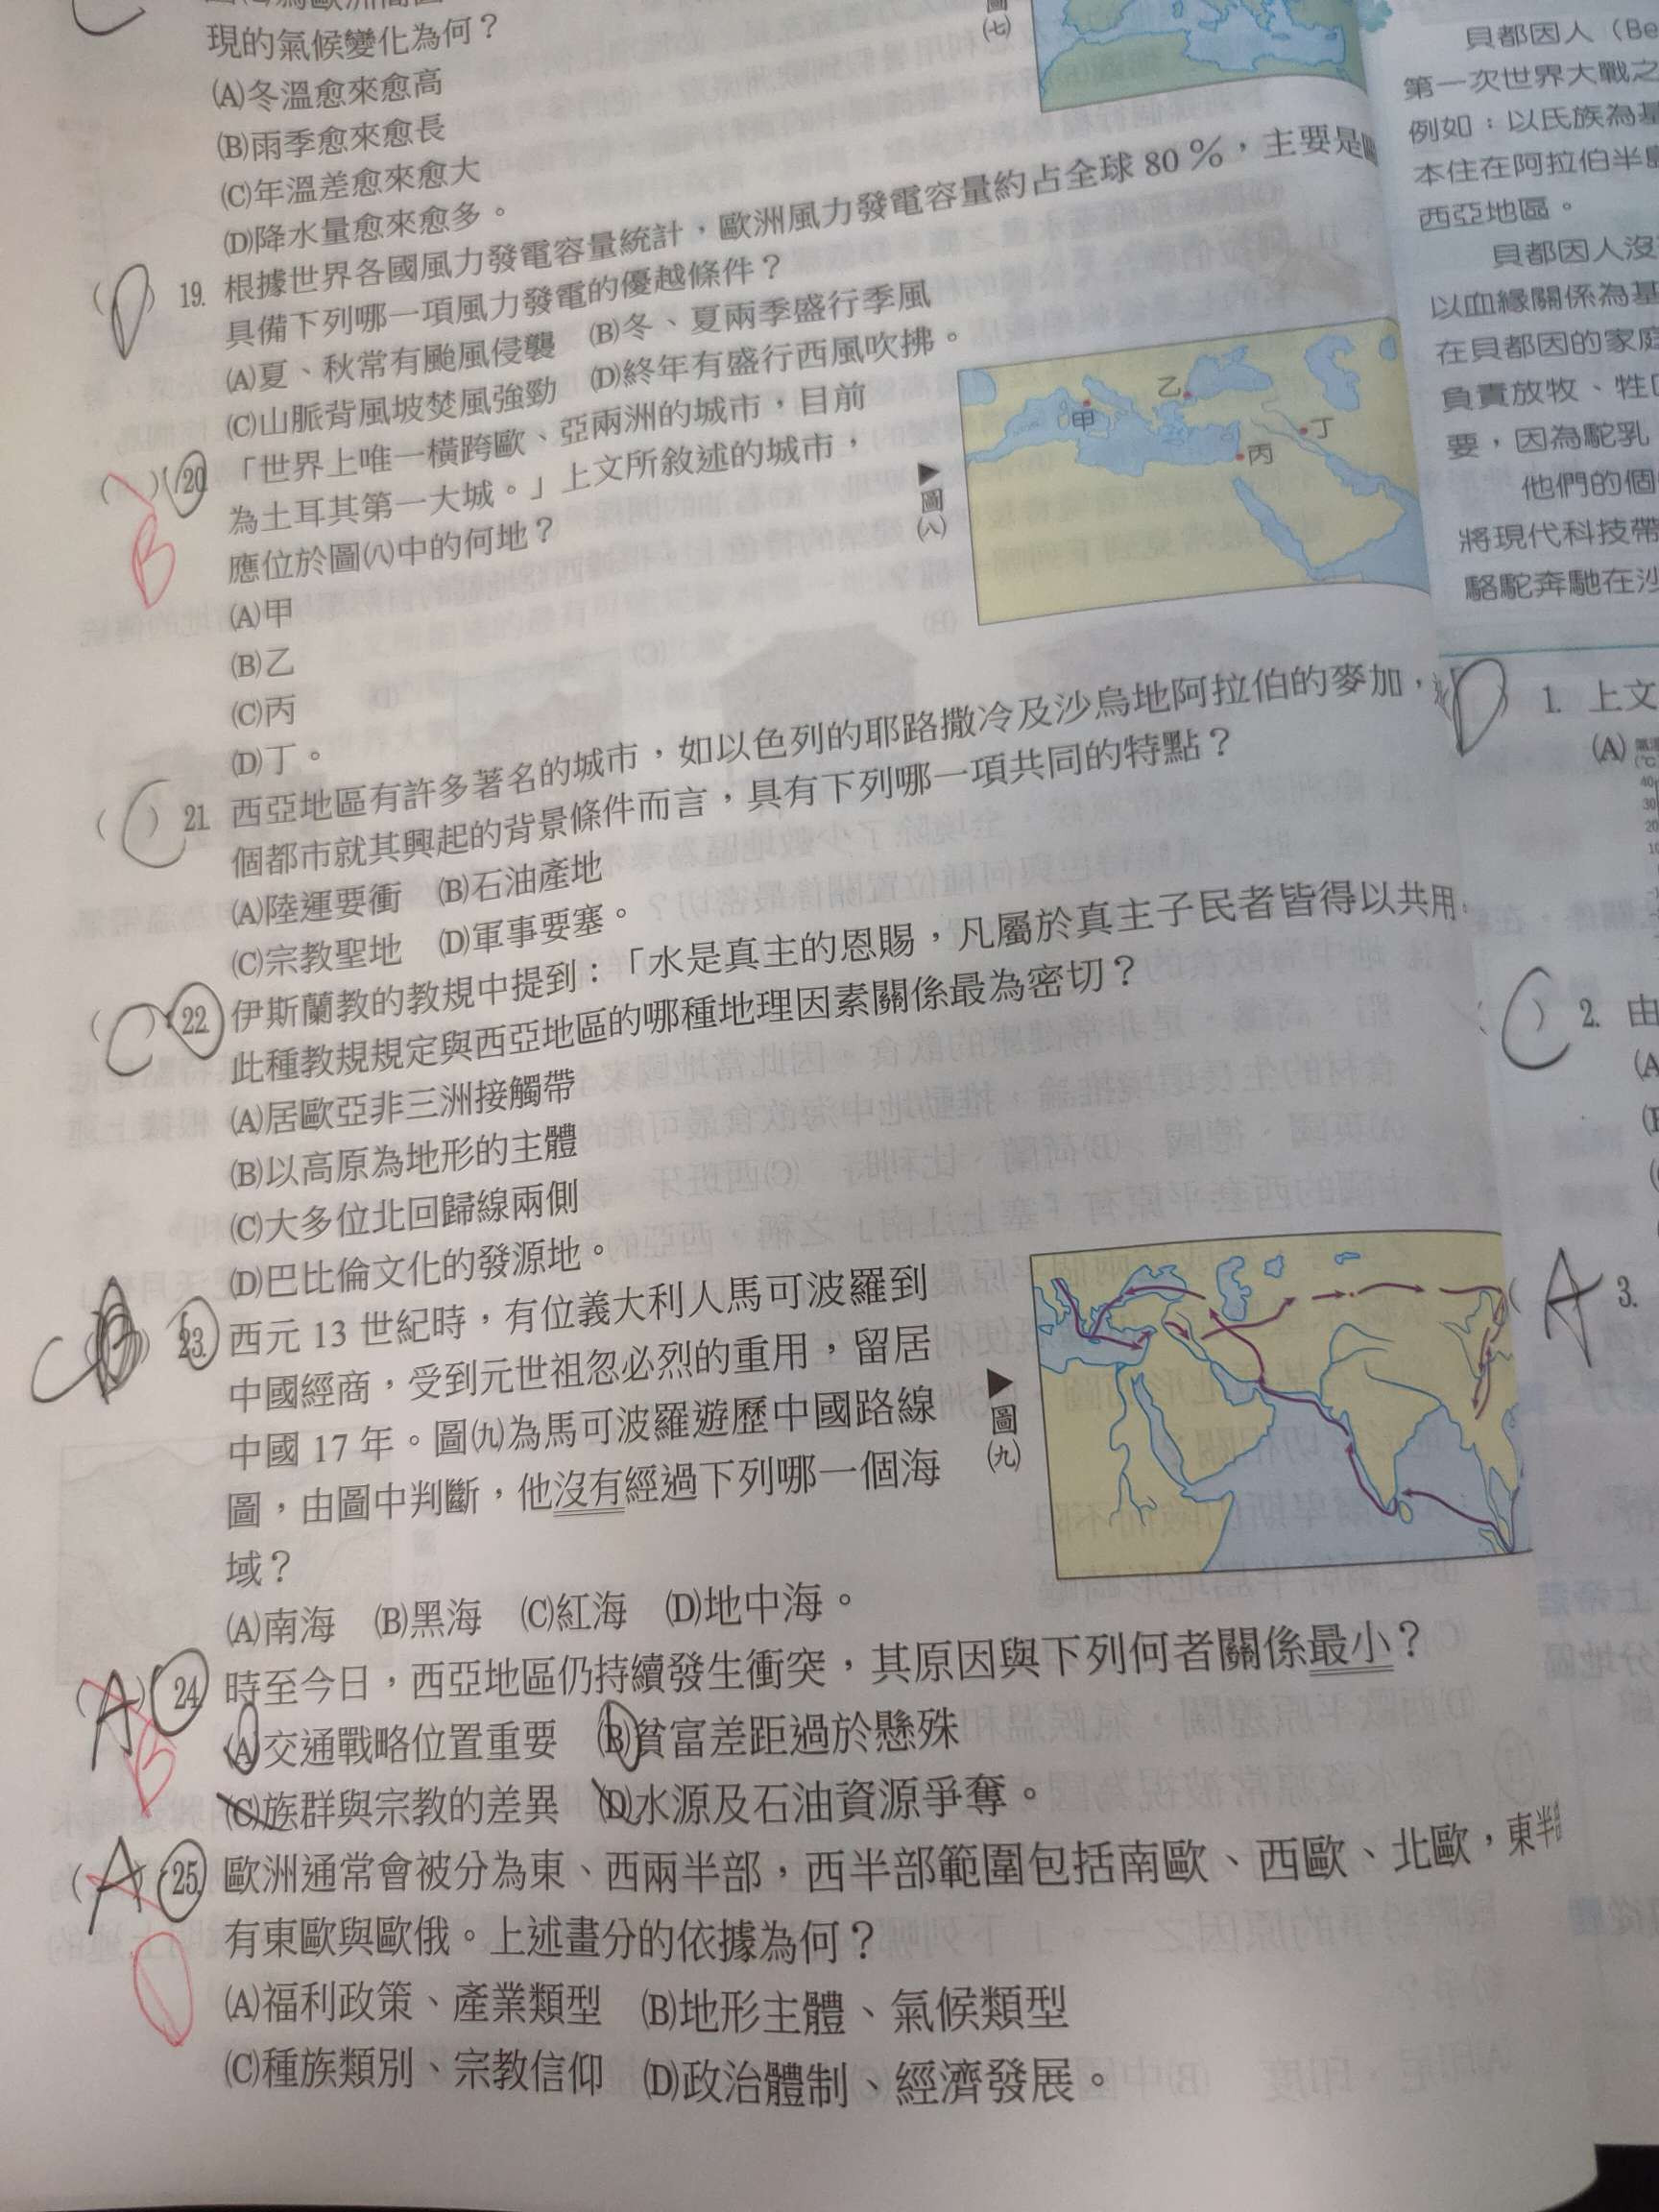 現的氣候變化為何？
(A)冬溫愈來愈高
(B)雨季愈來愈長
(C)年溫差愈來愈大
(D)降水量愈來愈多。
(D) 19. 根據世界各國風力發電容量統計，歐洲風力發電容量約占全球 80 %，主要是
具備下列哪一項風力發電的優越條件？
(A)夏、秋常有颱風侵襲 (B)冬、夏兩季盛行季風
(C)山脈背風坡焚風強勁 (D)終年有盛行西風吹拂。
B
( ) 20. 「世界上唯一橫跨歐、亞兩洲的城市，目前
為土耳其第一大城。」上文所敘述的城市，
應位於圖(八)中的何地？
(A)甲
(B)乙
(C)丙
(D)丁。
甲
乙
丙
丁
▶圖(八)
圖(七)
(C) 21. 西亞地區有許多著名的城市，如以色列的耶路撒冷及沙烏地阿拉伯的麥加，
個都市就其興起的背景條件而言，具有下列哪一項共同的特點？
(A)陸運要衝 (B)石油產地
(C)宗教聖地 (D)軍事要塞。
(C) 22. 伊斯蘭教的教規中提到：「水是真主的恩賜，凡屬於真主子民者皆得以共用
此種教規規定與西亞地區的哪種地理因素關係最為密切？
(A)居歐亞非三洲接觸帶
(B)以高原為地形的主體
(C)大多位北回歸線兩側
(D)巴比倫文化的發源地。
C 23. 西元 13 世紀時，有位義大利人馬可波羅到
中國經商，受到元世祖忽必烈的重用，留居
中國 17 年。圖(九)為馬可波羅遊歷中國路線
圖，由圖中判斷，他沒有經過下列哪一個海
域？
(A)南海 (B)黑海 (C)紅海 (D)地中海。
▶圖(九)
(A) 24. 時至今日，西亞地區仍持續發生衝突，其原因與下列何者關係最小？
B
(A)交通戰略位置重要 (B)貧富差距過於懸殊
(C)族群與宗教的差異 (D)水源及石油資源爭奪。
(A) 25. 歐洲通常會被分為東、西兩半部，西半部範圍包括南歐、西歐、北歐，東半
D
有東歐與歐俄。上述畫分的依據為何？
(A)福利政策、產業類型 (B)地形主體、氣候類型
(C)種族類別、宗教信仰 (D)政治體制、經濟發展。
貝都因人（Be
第一次世界大戰之
例如：以氏族為基
本住在阿拉伯半島
西亞地區。
貝都因人沒
以血緣關係為基
在貝都因的家庭
負責放牧、牲
要，因為駝乳
他們的個
將現代科技帶
駱駝奔馳在沙
(D) 1. 上文
(A)
(C) 2. 由
(A
A 3.